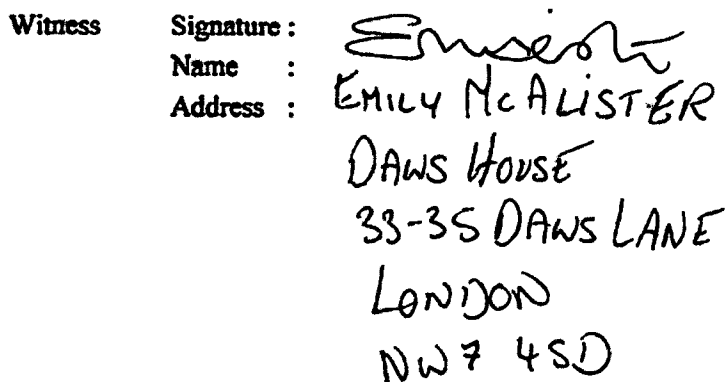 Witness Signature :
Name : EMILY McALISTER
Address : DAWS HOUSE
33-35 DAWS LANE
LONDON
NW7 4SD